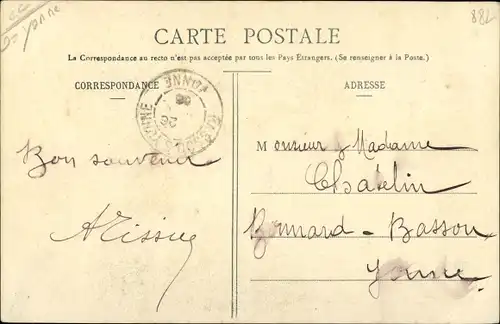 882
CARTE POSTALE
La Correspondance au recto n'est pas acceptée par tous les Pays Etrangers. (Se renseigner à la Poste.)
CORRESPONDANCE
ADRESSE
YONNE
26
Bon souvenir
Monsieur & Madame
Châtelin
Basson
Yonne